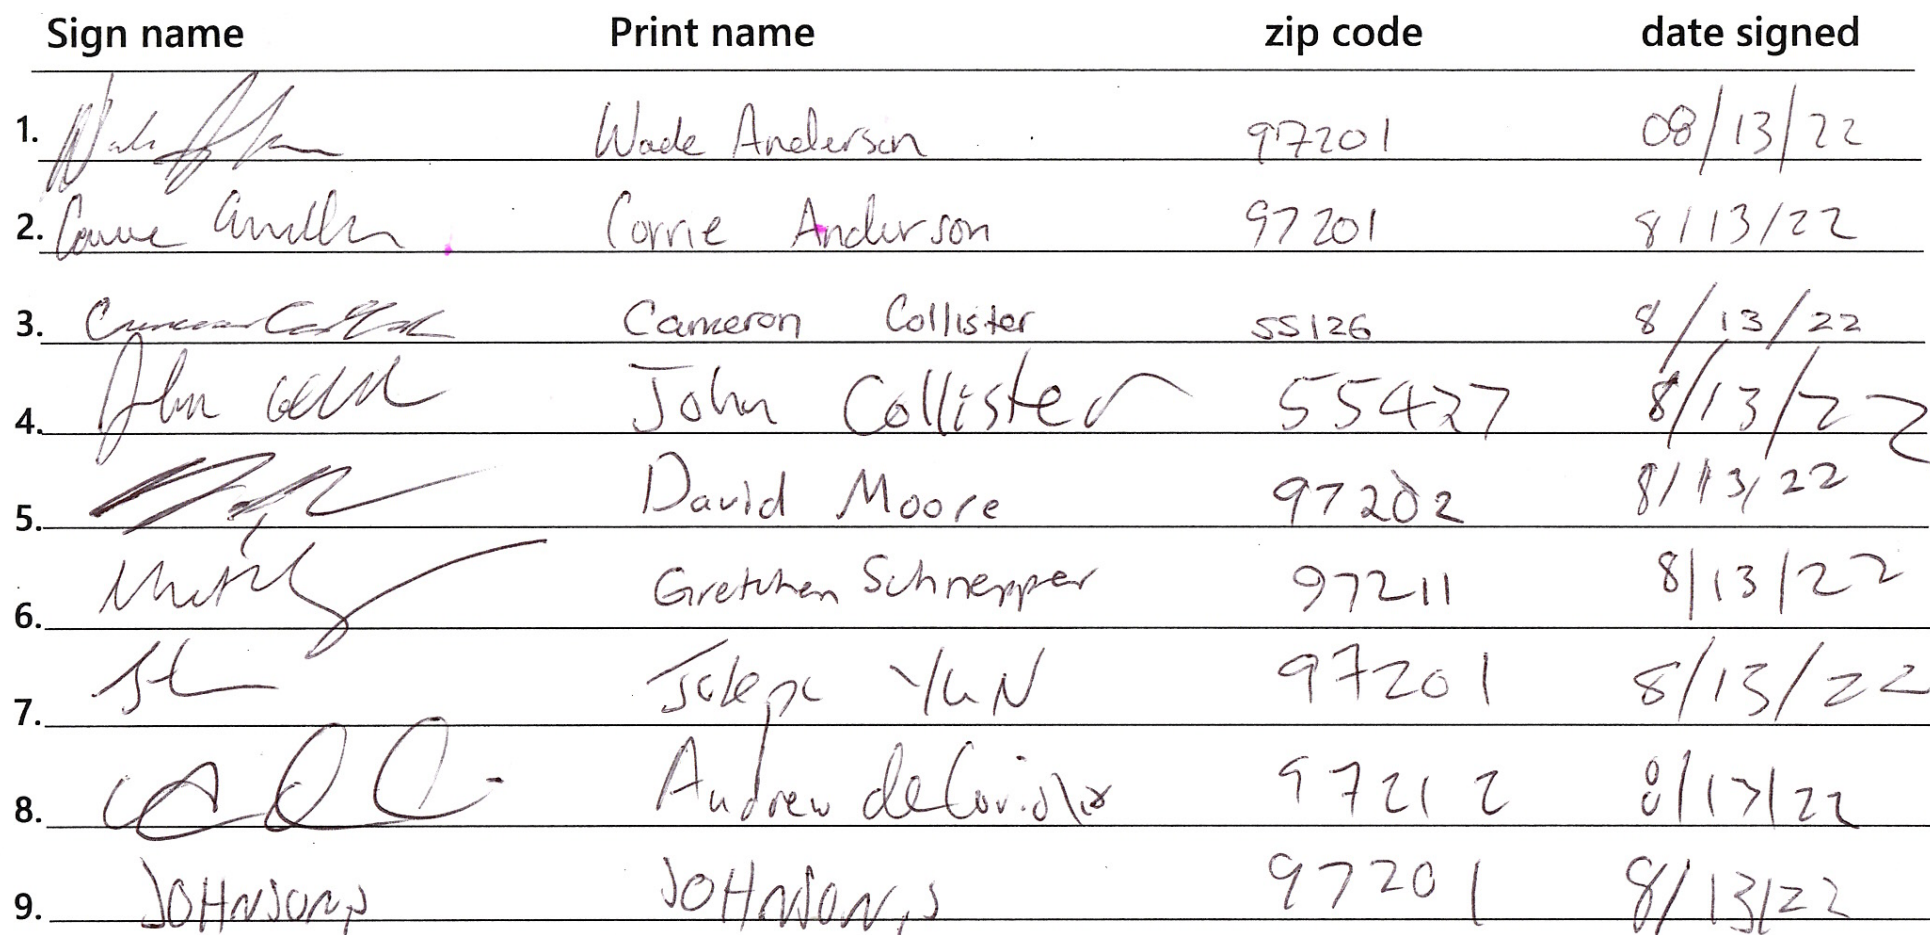 Sign name Print name zip code date signed
1. Wade Anderson 97201 08/13/22
2. Corrie Anderson Corrie Anderson 97201 8/13/22
3. Cameron Collister Cameron Collister 55126 8/13/22
4. John Collister 55427 8/13/22
5. David Moore 97202 8/13/22
6. Gretchen Schnepper 97211 8/13/22
7. YuN 97201 8/13/22
8. Andrew 97212 8/13/22
9. JOHNSON,J JOHNSON,J 97201 8/13/22